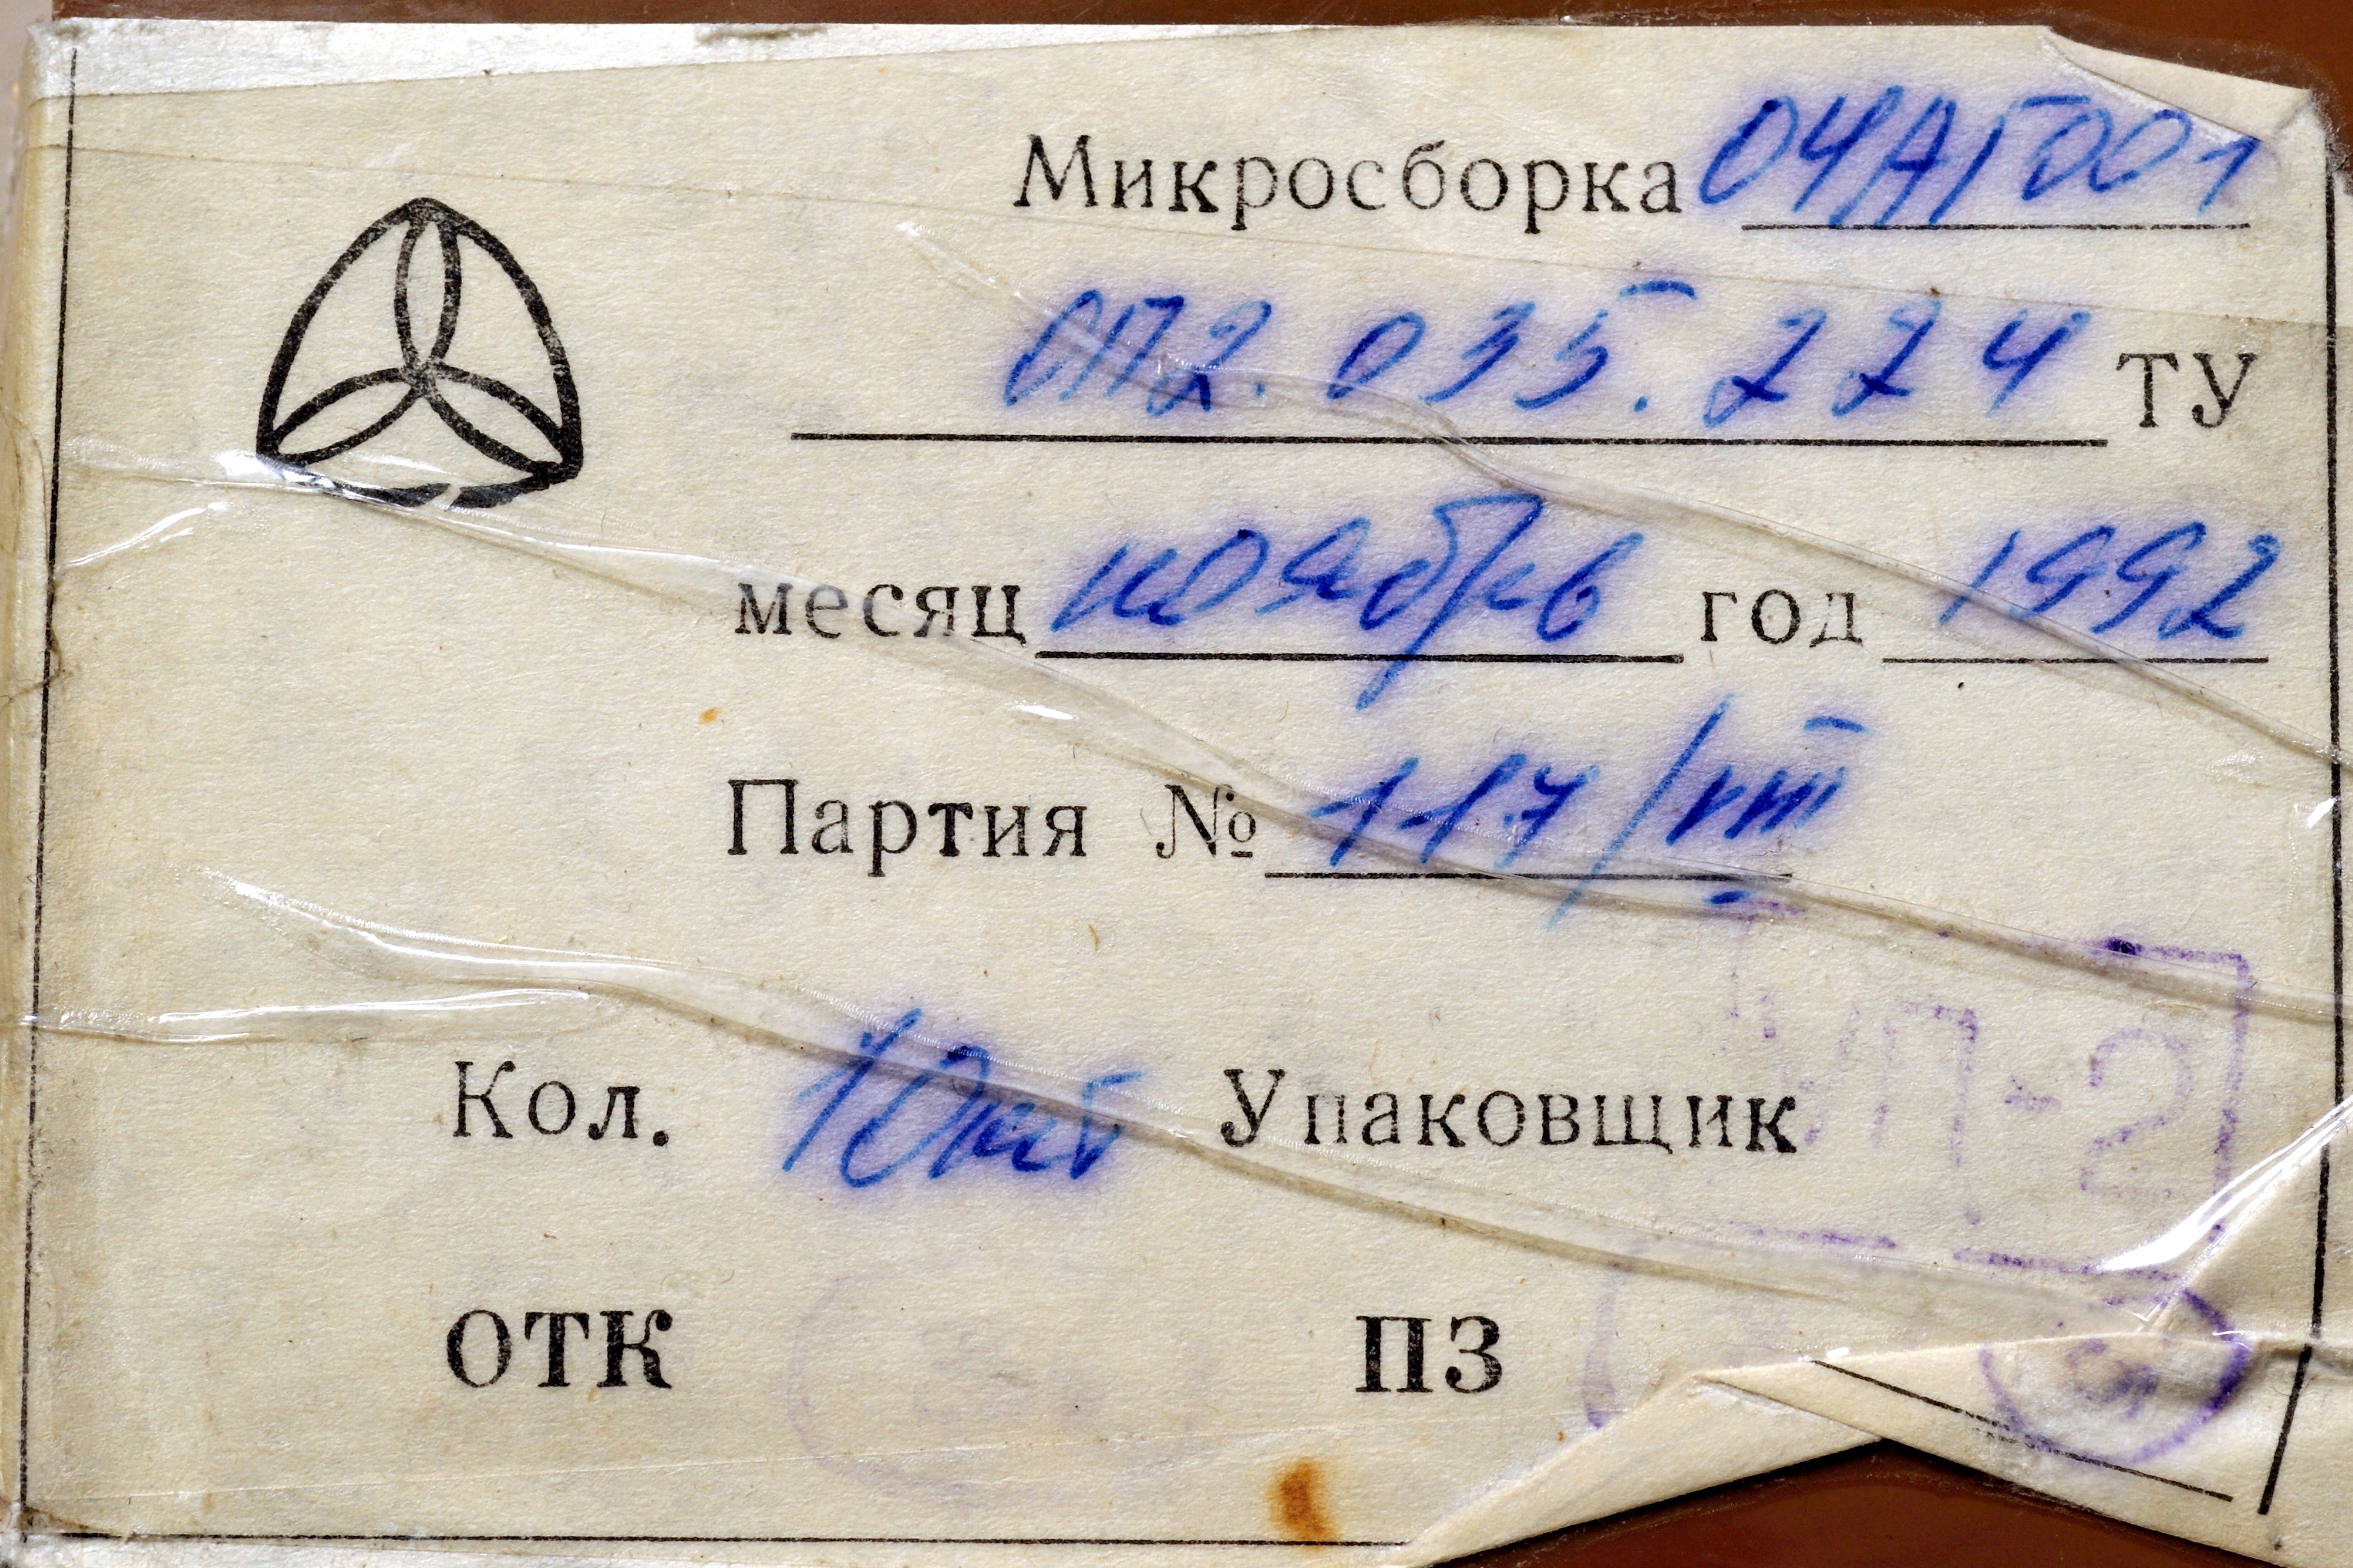 Микросборка 04АГ001
СП2.035.224 ТУ
месяц ноябрь год 1992
Партия № 117/VIII
Кол. 10шт Упаковщик
-2
ОТК ПЗ